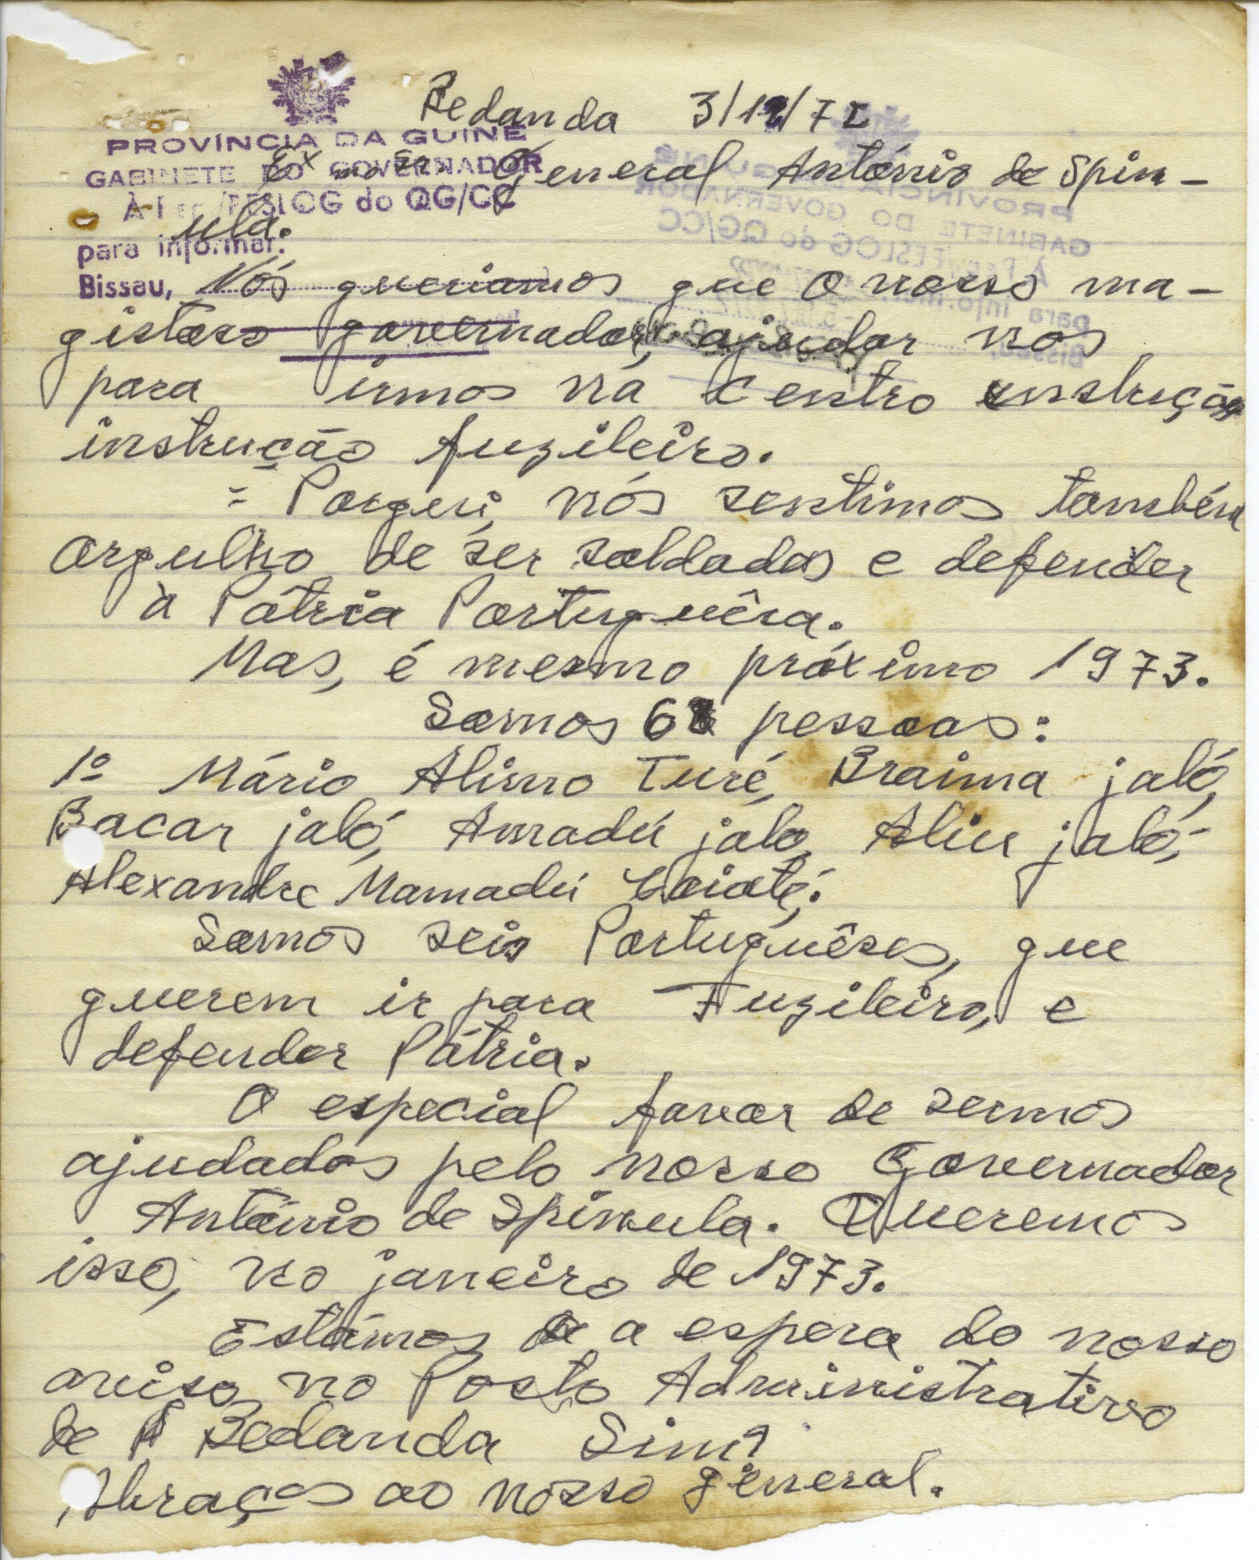 Bedanda 3/12/72
PROVÍNCIA DA GUINÉ
GABINETE DO GOVERNADOR
Exmo Sr. General António de Spin-
À Rep/PESLOG do QG/CC
ula.
para informar.
Bissau,
Nós queriamos que o nosso ma-
gistoso governador, ajudar nos
para irmos na Centro instrução
instrução fuzileiro.
= Porqeui, nós sentimos também
orgulho de ser soldados e defender
à Pátria Portuguêsa.
Mas, é mesmo próximo 1973.
Somos 6 pessoas:
1º Mário Alimo Turé, Braima jaló,
Bacar jaló, Amadú jalo, Aliu jaló,
Alexandre Mamadú Coiaté.
Somos seis Portuguêses, que
querem ir para Fuzileiro, e
defender Pátria.
O especial favor de sermos
ajudados pelo nosso Governador
António de Spínula. Queremos
isso, no janeiro de 1973.
Estámos a espera do nosso
aviso no Posto Administrativo
de Bedanda Sim?
Abraços ao nosso general.